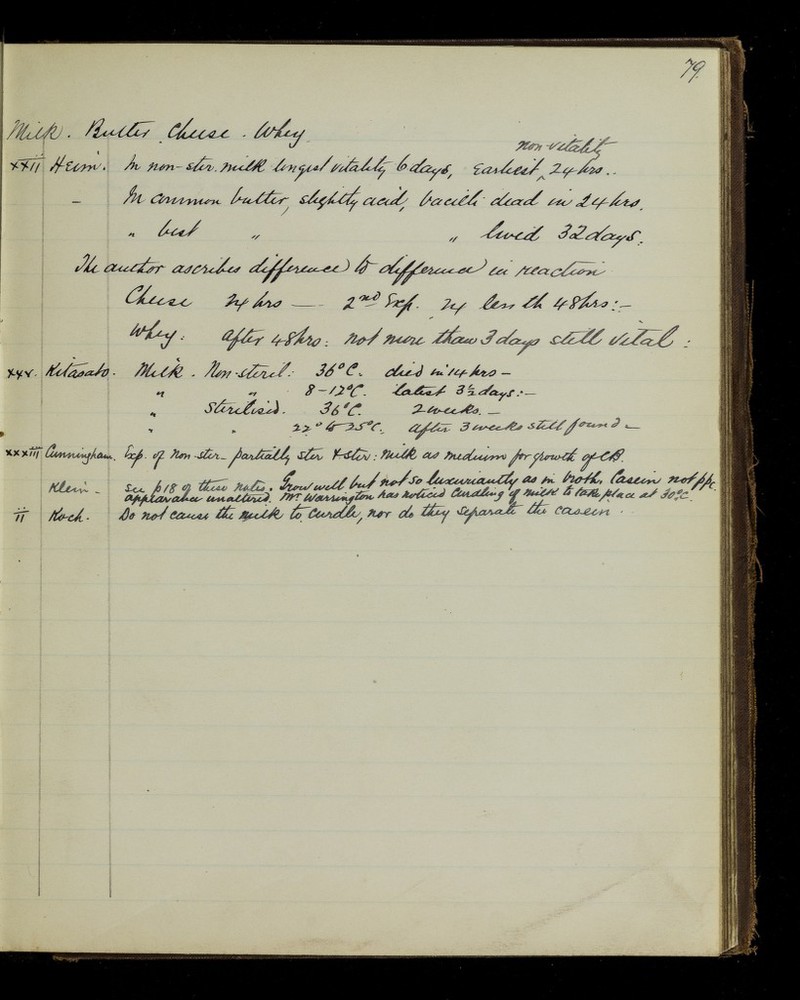 79.
Milk. Butter. Cheese. Whey.
non-vitality
XXII Heim. In non-ster. milk longest vitality 6 days, Earliest ‸ 24 hrs..
– In common butter, slightly acid, bacilli dead in 24 hrs.
„ best „ „ lived 32 days.
The author ascribes difference to difference in reaction
Cheese 24 hrs — 2nd Exp. 24 48 hrs:–
Whey: after 48 hrs: not more than 3 days still vital:
XXV. Kitasato. Milk. Non-steril: 36°C. died in 14 hrs –
„ „ 8-12°C. latest 3½ days:–
„ Sterilised. 36°C. 2 weeks. –
„ „ 22° to 25°C. after 3 weeks still found –
XXXIII Cunningham. Exp. of non-ster- partially ster & ster: milk as medium for growth of CB.
Klein – see p 18 of these notes. Grow well but not so luxuriantly as in broth. Casein not ppt.
appearance unaltered. Mr. Warrington has noticed curdling of milk to take place at 30°C.
II Koch. Do not cause the milk to curdle, nor do they separate the casein.